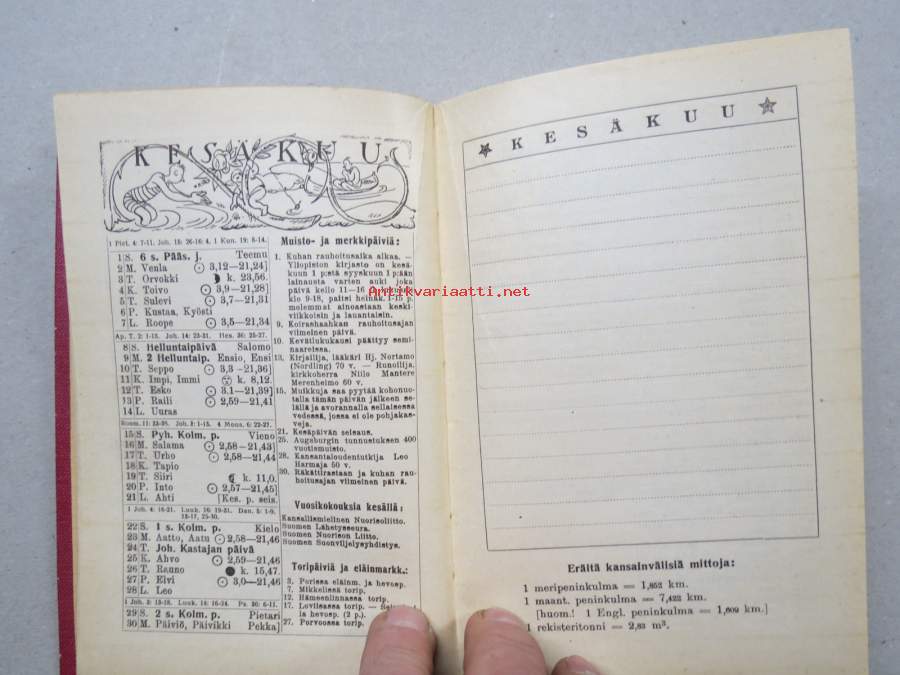 KESÄKUU
1 Piet. 4: 7-11. Joh. 15: 26-16: 4. 1 Kun. 19: 8-14.
1 S. 6 s. Pääs. j. Teemu
2 M. Venla 3,12—21,24]
3 T. Orvokki k. 23,56.
4 K. Toivo 3,9—21,28]
5 T. Sulevi 3,7—21,31
6 P. Kustaa, Kyösti
7 L. Roope 3,5—21,34
Ap. T. 2: 1-13. Joh. 14: 23-31. Hes. 36: 25-27.
8 S. Helluntaipäivä Salomo
9 M. 2 Helluntaip. Ensio, Ensi
10 T. Seppo 3,3 -21,36]
11 K. Impi, Immi k. 8,12.
12 T. Esko 3.1—21,39]
13 P. Raili 2,59—21,41
14 L. Uuras
Room. 11: 33-36. Joh. 3: 1-15. 4 Moos. 6: 22-27.
15 S. Pyh. Kolm. p. Vieno
16 M. Salama 2,58—21,43]
17 T. Urho 2,58—21,44
18 K. Tapio
19 T. Siiri k. 11,0.
20 P. Into 2,57—21,45]
21 L. Ahti [Kes. p. seis.
1 Joh. 4: 16-21. Luuk. 16: 19-31. Dan. 5: 1-9,
13-17, 25-30.
22 S. 1 s. Kolm. p. Kielo
23 M. Aatto, Aatu 2,58—21,46
24 T. Joh. Kastajan päivä
25 K. Ahvo 2,59—21,46
26 T. Rauno k. 15,47.
27 P. Elvi 3,0—21,46
28 L. Leo
1 Joh. 3: 13-18. Luuk. 14: 16-24. Ps. 36: 6-11.
29 S. 2 s. Kolm. p. Pietari
30 M. Päiviö, Päivikki Pekka]
Muisto- ja merkkipäiviä:
1. Kuhan rauhoitusaika alkaa. —
Yliopiston kirjasto on kesä-
kuun 1 p:stä syyskuun 1 pään
lainausta varten auki joka
päivä kello 11—16
klo 9-18, paitsi heinäk. 1-15 p.
molemmat ainoastaan keski-
viikkoisin ja lauantaisin.
9. Koirashaahkan rauhoitusajan
viimeinen päivä.
10. Kevätlukukausi päättyy semi-
naareissa.
13. Kirjailija, lääkäri Hj. Nortamo
(Nordling) 70 v. — Runoilija,
kirkkoherra Niilo Mantere
Merenheimo 60 v.
15. Muikkuja saa pyytää kohonuo-
talla tämän päivän jälkeen se-
lällä ja avorannalla sellaisessa
vedessä, jossa ei ole pohjakas-
veja.
21. Kesäpäivän seisaus.
25. Augsburgin tunnustuksen 400
vuotismuisto.
28. Kansantaloudentutkija Leo
Harmaja 50 v.
30. Räkättirastaan ja kuhan rau-
hoitusajan viimeinen päivä.
Vuosikokouksia kesällä:
Kansallismielinen Nuorisoliitto.
Suomen Lähetysseura.
Suomen Nuorison Liitto.
Suomen Suonviljelysyhdistys.
Toripäiviä ja eläinmarkk.:
3. Porissa eläinm. ja hevosp.
7. Mikkelissä torip.
12. Hämeenlinnassa torip.
17. Loviisassa torip. —
la hevosp. (2 p.).
27. Porvoossa torip.
Antikvariaatti.net
KESÄKUU
Eräitä kansainvälisiä mittoja:
1 meripeninkulma = 1,852 km.
1 maant. peninkulma = 7,422 km.
[huom.! 1 Engl. peninkulma = 1,609 km.]
1 rekisteritonni = 2,83 m³.